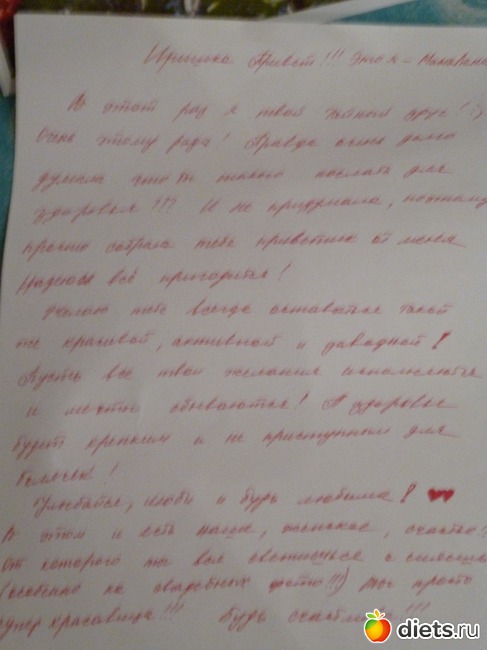 Иришка Привет!!! Это я - МамаРома
В этот раз я твой тайный друг! :)
Очень этому рада! Правда очень долго
думала что ж такого послать для
здоровья??? И не придумала, поэтому
просто собрала тебе приветик от меня
Надеюсь всё пригодится!
Желаю тебе всегда оставаться такой
же красивой, активной и заводной!
Пусть все твои желания исполняются
и мечты сбываются! А здоровье
будет крепким и не приступным для
болячек!
Улыбайся, люби и будь любима!
В этом и есть наше, женское, счастье!
от которого ты вся светишься и
(особенно на свадебных фото!!!) просто
супер красавица!!! Будь счастлива!!!
diets.ru